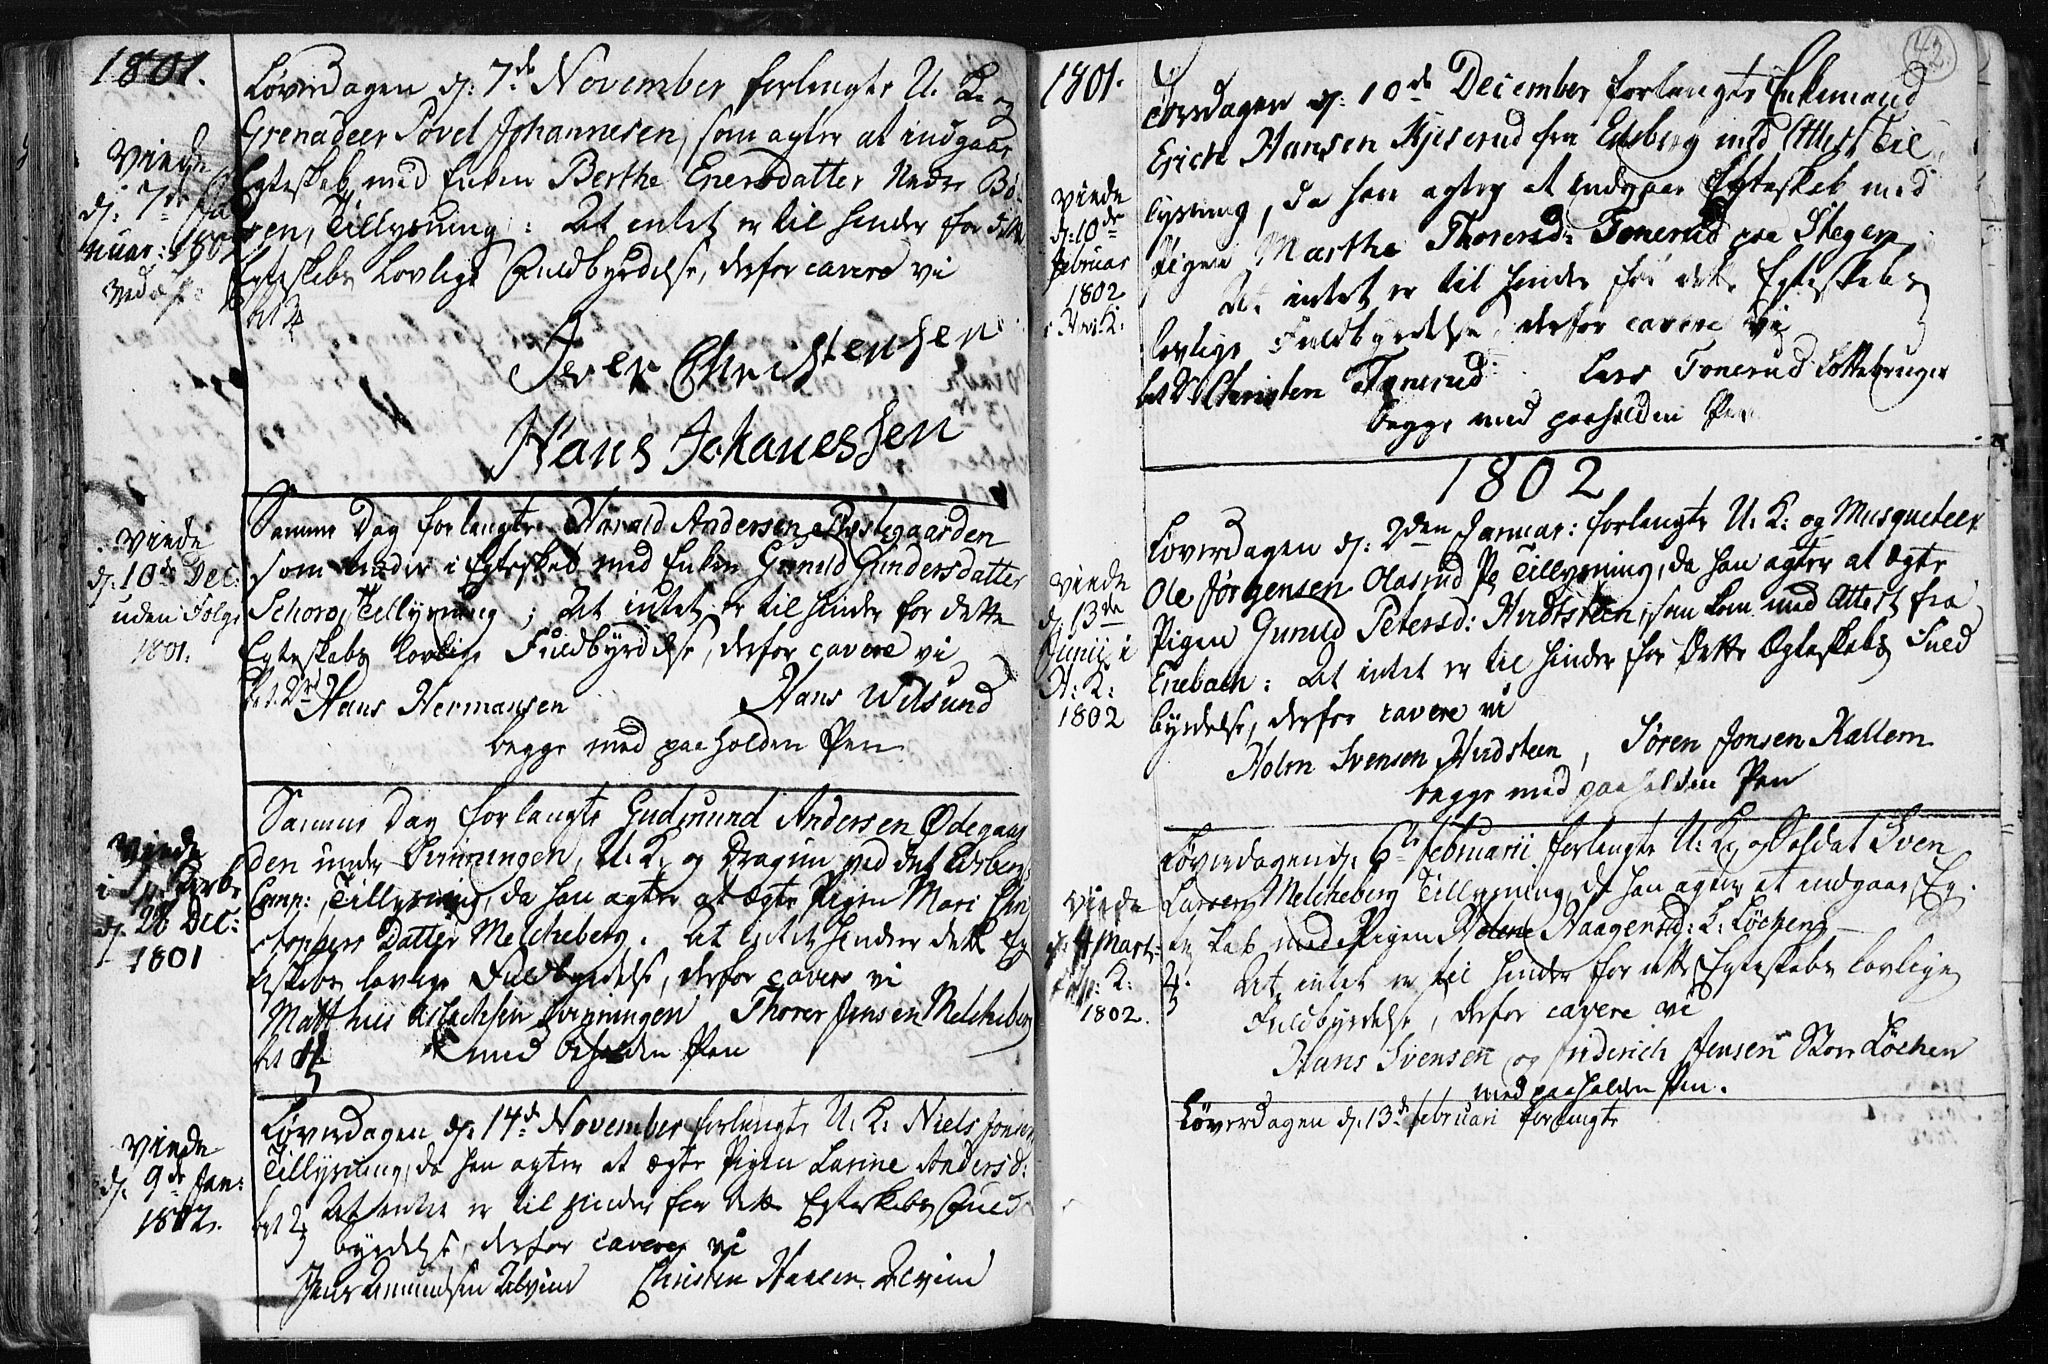 1801.
Løverdagen d: 7de November forlangte U. K. og
Grenadeer Povel Johannesen, som agter at indgaae
Egteskab med Enken Berthe Enersdatter Nedre Bö-
Tillysning: At intet er til hinder for dette
Egteskabs Lovlige Fuldbyrdelse, derfor cavere vi
Viede
d: 7de Ja-
nuar: 180
Iver Christensen
Hans Johanessen
Samme Dag forlangte Harald Andersen Prestegaarden
som træder i Egteskab med Enken Gunild Gundersdatter
Tillysning; At intet er til hinder for dette
Egteskabs lovlige Fuldbyrdelse, derfor cavere vi
Hans Hermansen Hans Wilsund
begge med paaholden Pen
Viede
d: 10de Dec:
uden Følge
1801.
Samme Dag forlangte Gudmund Andersen Ødegaar
den under Svinningen, U. K. og Dragun ved det Edsberg
Comp: Tillysning, da han agter at ægte Pigen Mari Chri
stophers Datter Melcheberg. At intet hindrer dette Eg
teskabs lovlige Fuldbyrdelse, derfor cavere vi
Matthis Aslachsen Svinningen Thorer Jensen Melcheberg
med paaholden Pen
Viede
d: 28 Dec:
1801
Løverdagen d: 14de November forlangte U. K. Niels Jonsen
Tillysning, da han agter at ægte Pigen Larine Andersd:
bet 2 At intet er til hinder for dette Egteskabs Fuld
byrdelse, derfor cavere vi
Amundsen Alvim Christen Hansen Alvim
Viede
d: 9de Jan:
1802.
42.
1801.
Torsdagen d: 10de December forlangte Enkemand
Erich Hansen Hjeserud fra Edsberg med Attest Til
lysning, da han agter at indgaae Egteskab med
Pigen Marthe Thorersd: Tonerud paa Stegen
At intet er til hinder for dette Egteskabs
lovlige Fuldbyrdelse, derfor cavere vi
Christen Tonerud Lars Tonerud
begge med paaholden Pen
Viede
d: 10de
Februar
1802
1802
Løverdagen d: 2den Januar: forlangte U. K: og Musqueteer
Ole Jørgensen Olasrud Tillysning, da han agter at ægte
Pigen Gunild Petersd: Hvidsteen, som kom med Attest fra
Enebach: At intet er til hinder for dette Egteskabs Fuld
byrdelse, derfor cavere vi
Holm Svensen Hvidsteen, Søren Jonsen Kallem
begge med paaholden Pen
Viede
d: 13de
Junii i
H: K:
1802
Løverdagen d: 6te Februarii forlangte U. K. og Soldat Sven
Larsen Melcheberg Tillysning, da han agter at indgaae Eg-
teskab med Pigen Helene Haagensd: L: Løchen
At intet er til hinder for dette Egteskabs lovlige
Fuldbyrdelse, derfor cavere vi
Hans Svensen og Friderich Jensen Stor Løchen
med paaholden Pen.
Viede
d: 4 Marti
K:
1802.
Løverdagen d: 13de Februari forlangte